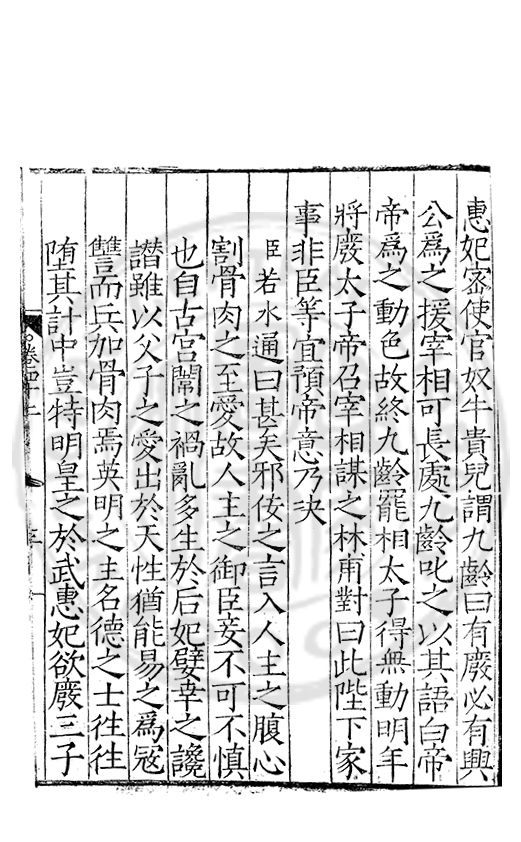 惠妃宻使官奴牛貴兒謂九齡曰有廢必有興
公爲之援宰相可長處九齡叱之以其語白帝
帝爲之動色故終九齡罷相太子得無動明年
將廢太子帝召宰相謀之林甫對曰此陛下家
事非臣等宜預帝意乃決
臣若水通曰甚矣邪佞之言入人主之腹心
割骨肉之至愛故人主之御臣妾不可不慎
也自古宫闈之禍亂多生於后妃嬖幸之讒
譖雖以父子之愛出於天性猶能易之爲寇
讐而兵加骨肉焉英明之主名德之士徃徃
墮其計中豈特明皇之於武惠妃欲廢三子